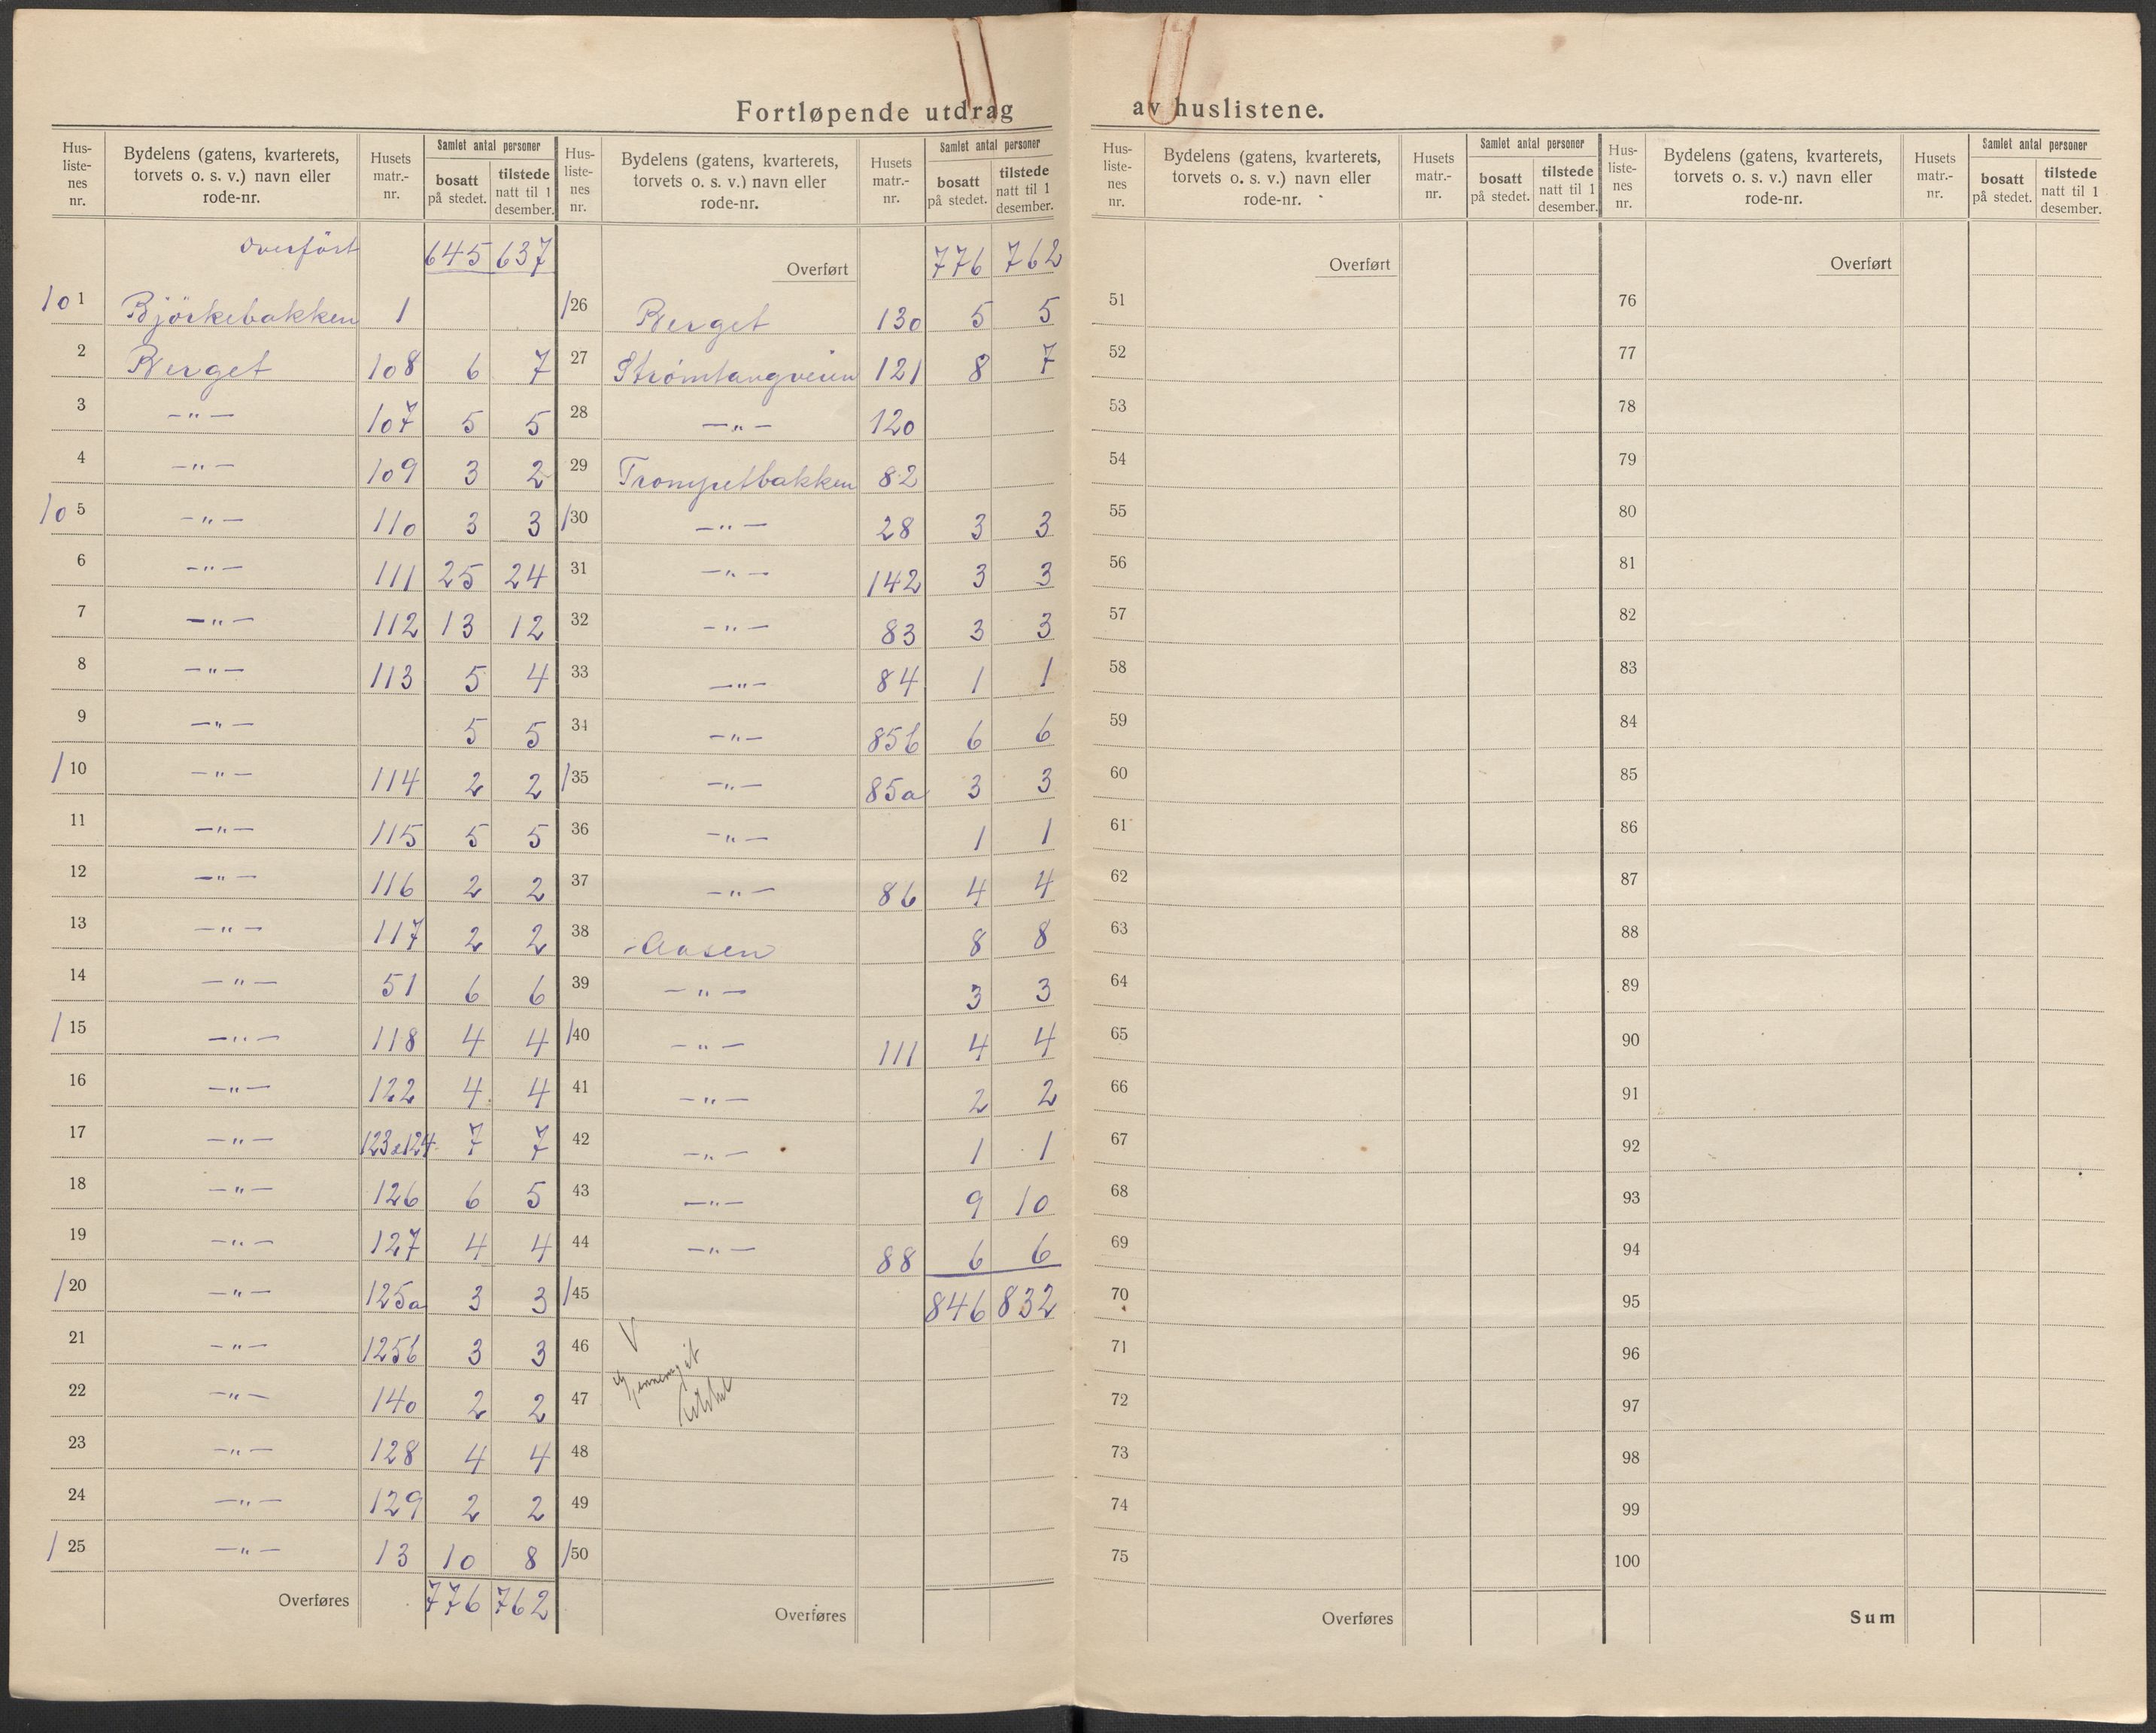 Fortløpende utdrag av huslistene.
Hus-listenes nr. | Bydelens (gatens, kvarterets, torvets o. s. v.) navn eller rode-nr. | Husets matr.-nr. | Samlet antal personer bosatt på stedet. | tilstede natt til 1 desember.
overført 645 637
101 Bjørkebakken 1
2 Berget 108 6 7
3 —"— 107 5 5
4 —"— 109 3 2
105 —"— 110 3 3
6 —"— 111 25 24
7 —"— 112 13 12
8 —"— 113 5 4
9 —"— 5 5
/10 —"— 114 2 2
11 —"— 115 5 5
12 —"— 116 2 2
13 —"— 117 2 2
14 —"— 51 6 6
/15 —"— 118 4 4
16 —"— 122 4 4
17 —"— 123 & 124 7 7
18 —"— 126 6 5
19 —"— 127 4 4
/20 —"— 125a 3 3
21 —"— 125b 3 3
22 —"— 140 2 2
23 —"— 128 4 4
24 —"— 129 2 2
/25 —"— 13 10 8
Overføres 776 762
Hus-listenes nr. | Bydelens (gatens, kvarterets, torvets o. s. v.) navn eller rode-nr. | Husets matr.-nr. | Samlet antal personer bosatt på stedet. | tilstede natt til 1 desember.
Overført 776 762
/26 Berget 130 5 5
27 Strømtangveien 121 8 7
28 —"— 120
29 Trompetbakken 82
/30 —"— 28 3 3
31 —"— 142 3 3
32 —"— 83 3 3
33 —"— 84 1 1
34 —"— 85b 6 6
/35 —"— 85a 3 3
36 —"— 1 1
37 —"— 86 4 4
38 Aasen 8 8
39 —"— 3 3
/40 —"— 111 4 4
41 —"— 2 2
42 —"— 1 1
43 —"— 9 10
44 —"— 88 6 6
/45 846 832
46 V
Gjennemgit
47
48
49
/50
Overføres
Hus-listenes nr. | Bydelens (gatens, kvarterets, torvets o. s. v.) navn eller rode-nr. | Husets matr.-nr. | Samlet antal personer bosatt på stedet. | tilstede natt til 1 desember.
Overført
51
52
53
54
55
56
57
58
59
60
61
62
63
64
65
66
67
68
69
70
71
72
73
74
75
Overføres
Hus-listenes nr. | Bydelens (gatens, kvarterets, torvets o. s. v.) navn eller rode-nr. | Husets matr.-nr. | Samlet antal personer bosatt på stedet. | tilstede natt til 1 desember.
Overført
76
77
78
79
80
81
82
83
84
85
86
87
88
89
90
91
92
93
94
95
96
97
98
99
100
Sum